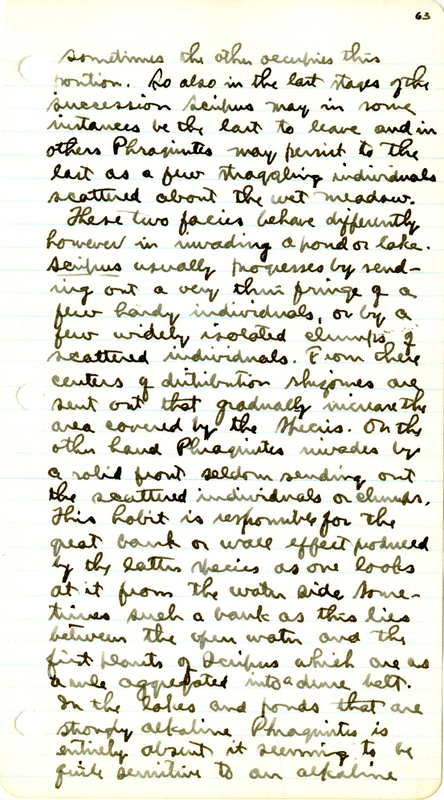 63
sometimes the other occupies this
position. So also in the last stages of the
succession Scirpus may in some
instances be the last to leave and in
others Phragmites may persist to the
last as a few straggling individuals
scattered about the wet meadow.
These two facies behave differently
however in invading a pond or lake.
Scirpus usually progresses by send-
ing out a very thin fringe of a
few hardy individuals, or by a
few widely isolated clumps of
scattered individuals. From these
centers of distribution rhizomes are
sent out that gradually increase the
area covered by the species. On the
other hand Phragmites invades by
a solid front seldom sending out
the scattered individuals or clumps.
This habit is responsible for the
great bank or wall effect produced
by the latter species as one looks
at it from the water side. Some-
times such a bank as this lies
between the open water and the
first plants of Scirpus which are as
a rule aggregated into a dense belt.
In the lakes and ponds that are
strongly alkaline Phragmites is
entirely absent it seeming to be
quite sensitive to an alkaline